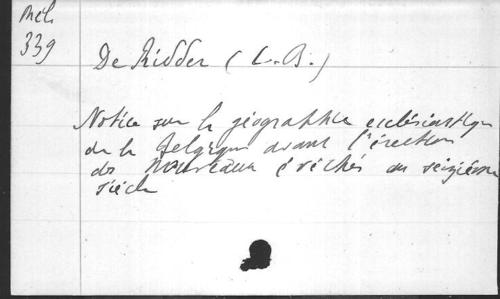 Mél.
339
De Ridder (C.B.)
Notice sur la géographie ecclésiastique
de la Belgique avant l'érection
des nouveaux évêchés au seizième
siècle